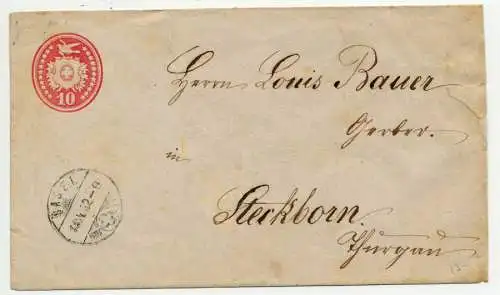 10
Herrn Louis Bauer
Gerber.
in
Steckborn.
Thurgau
BASEL